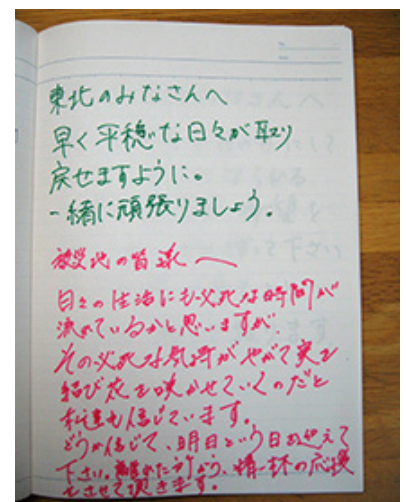 東北のみなさんへ
早く平穏な日々が取り
戻せますように。
一緒に頑張りましょう。
被災地の皆様へ
日々の生活にも必死な時間が
流れているかと思いますが
その必死な気持がやがて実を
結び花を咲かせていくのだと
私達も信じています。
どうか信じて、明日という日を迎えて
下さい。 精一杯の応援
をさせて頂きます。